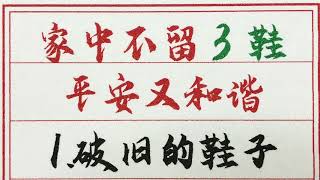 家中不留3鞋
平安又和谐
1破旧的鞋子